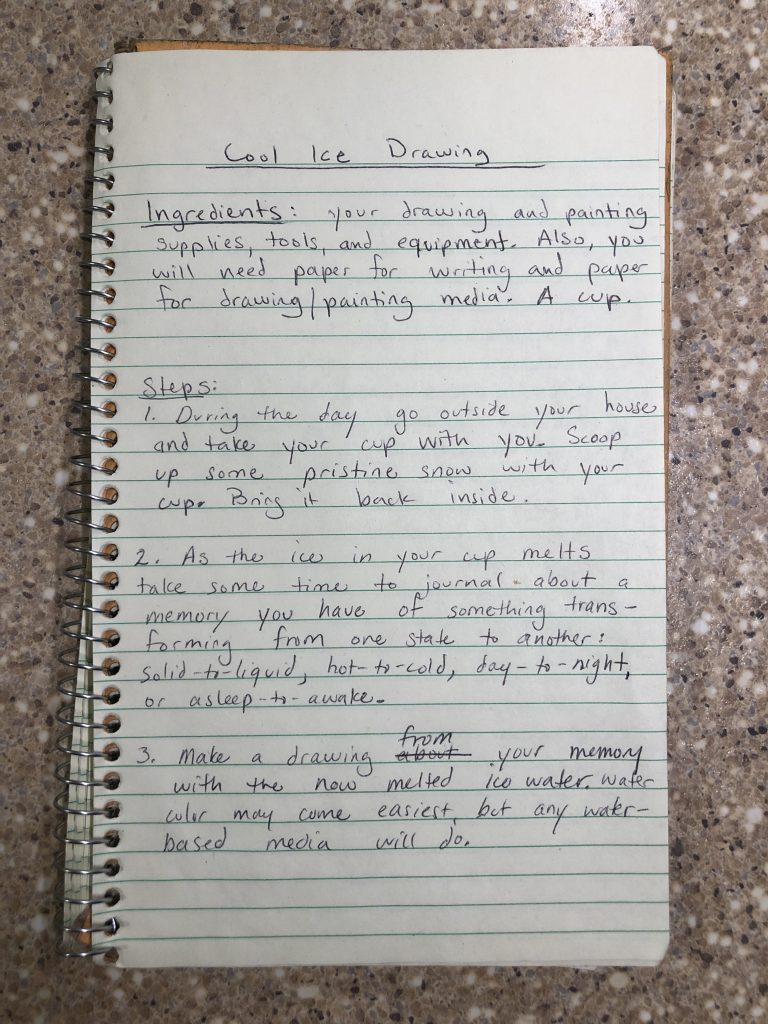 Cool Ice Drawing
Ingredients: your drawing and painting
supplies, tools, and equipment. Also, you
will need paper for writing and paper
for drawing/painting media. A cup.
Steps:
1. During the day go outside your house
and take your cup with you. Scoop
up some pristine snow with your
cup. Bring it back inside.
2. As the ice in your cup melts
take some time to journal about a
memory you have of something trans-
forming from one state to another:
solid-to-liquid, hot-to-cold, day-to-night,
or asleep-to-awake.
from
3. Make a drawing about your memory
with the now melted ice water. Water
color may come easiest, but any water-
based media will do.